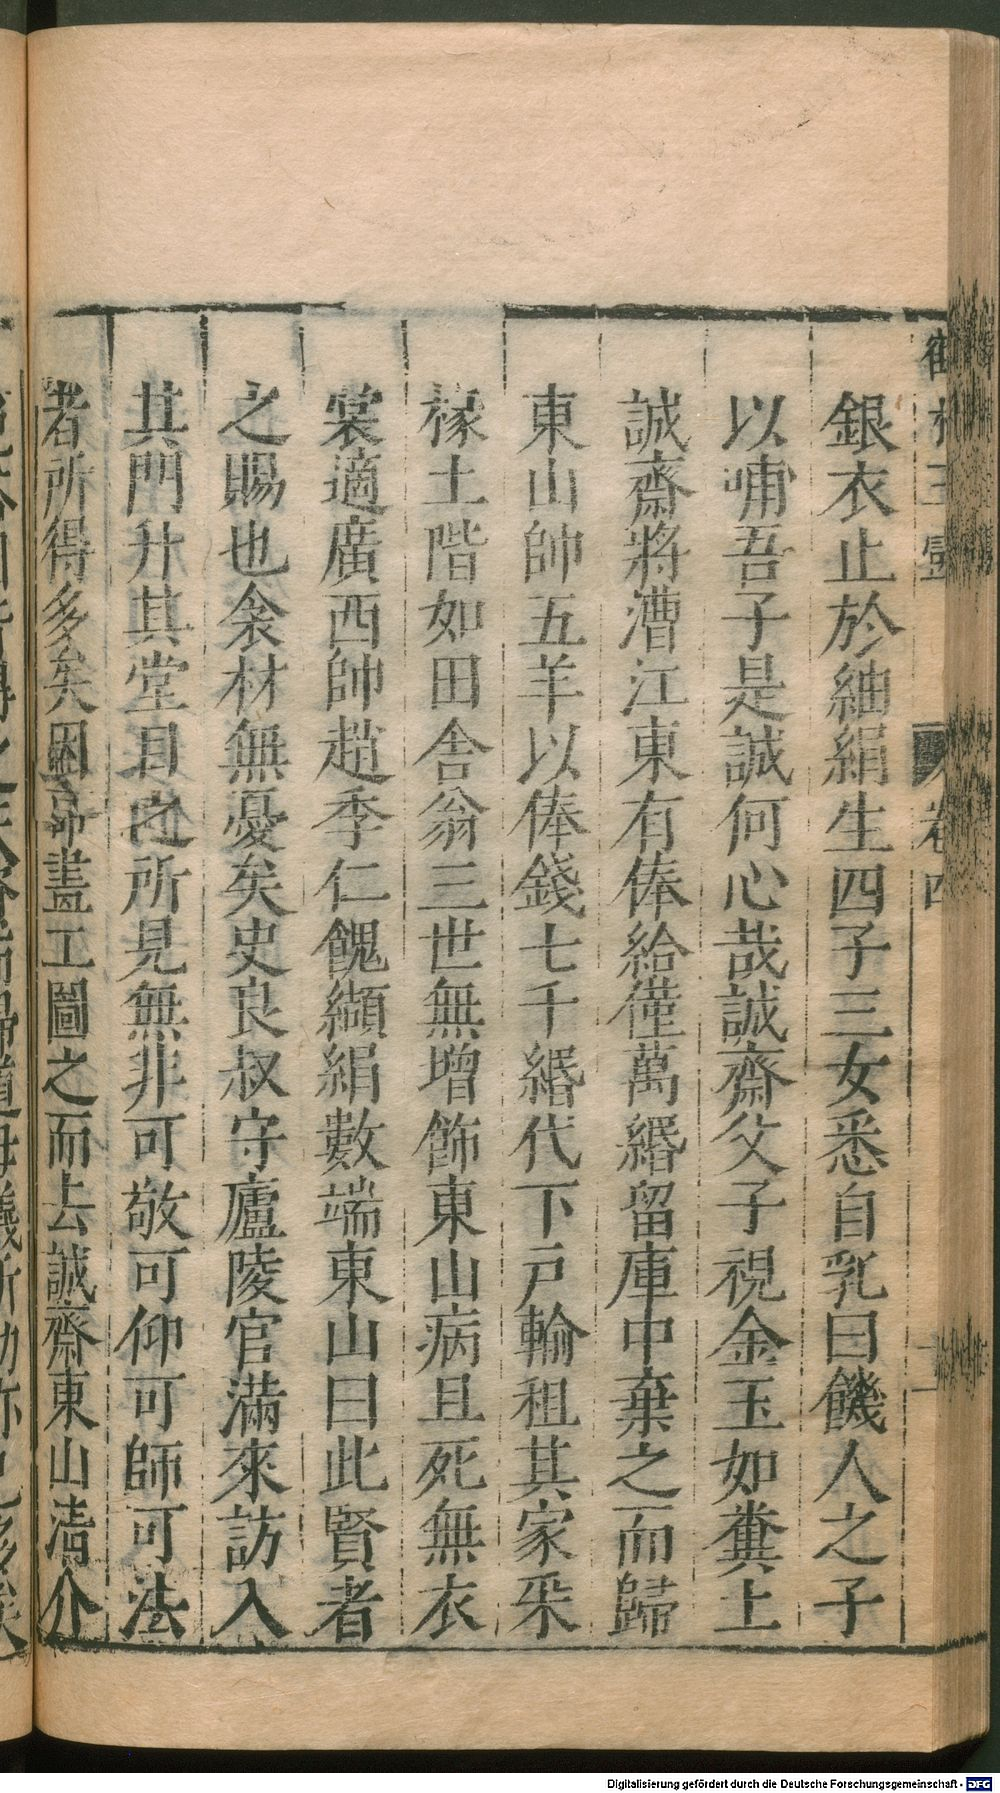 銀衣止於紬絹生四子三女悉自乳曰饑人之子
以哺吾子是誠何心哉誠齋父子視金玉如糞土
誠齋將漕江東有俸給僅萬緡留庫中棄之而歸
東山帥五羊以俸錢七千緡代下戶輸租其家采
椽土階如田舍翁三世無增飾東山病且死無衣
裳適廣西帥趙季仁餽纈絹數端東山曰此賢者
之賜也衾材無憂矣史良叔守廬陵官滿來訪入
其門升其堂目之所見無非可敬可仰可師可法
者所得多矣因命畫工圖之而去誠齋東山清介
卷四
Digitalisierung gefördert durch die Deutsche Forschungsgemeinschaft - DFG